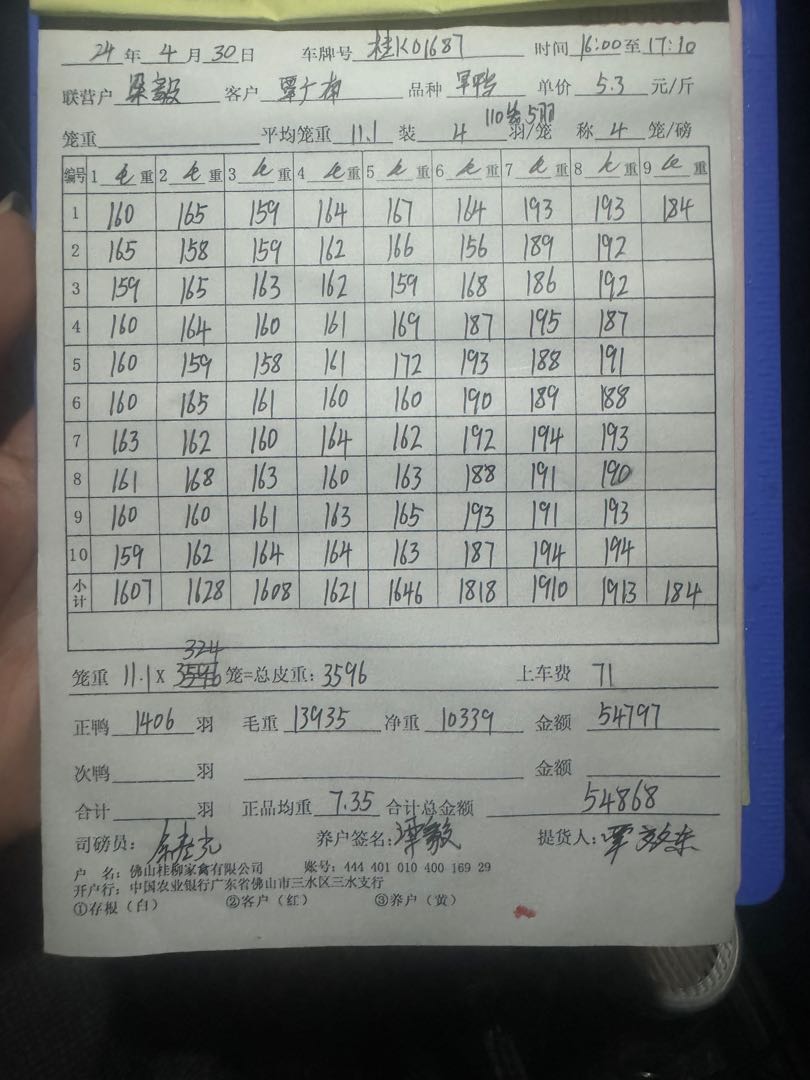 24 年 4 月 30 日 车牌号 桂K01687 时间 16:00 至 17:10
联营户 梁毅 客户 覃广南 品种 单价 5.3 元/斤
110笼5羽
笼重 平均笼重 11.1 装 4 羽/笼 称 4 笼/磅
编号 1 毛 重 2 毛 重 3 毛 重 4 毛 重 5 毛 重 6 毛 重 7 毛 重 8 毛 重 9 毛 重
1 160 165 159 164 167 164 193 193 184
2 165 158 159 162 166 156 189 192
3 159 165 163 162 159 168 186 192
4 160 164 160 161 169 187 195 187
5 160 159 158 161 172 193 188 191
6 160 165 161 160 160 190 189 188
7 163 162 160 164 162 192 194 193
8 161 168 163 160 163 188 191 190
9 160 160 161 163 165 193 191 193
10 159 162 164 164 163 187 194 194
小计 1607 1628 1608 1621 1646 1818 1910 1913 184
324
笼重 11.1 X 3596 笼=总皮重: 3596 上车费 71
正鸭 1406 羽 毛重 13935 净重 10339 金额 54797
次鸭 羽 金额
合计 羽 正品均重 7.35 合计总金额 54868
司磅员: 养户签名: 梁毅 提货人:
户 名: 佛山桂柳家禽有限公司 账号: 444 401 010 400 169 29
开户行: 中国农业银行广东省佛山市三水区三水支行
①存根（白） ②客户（红） ③养户（黄）